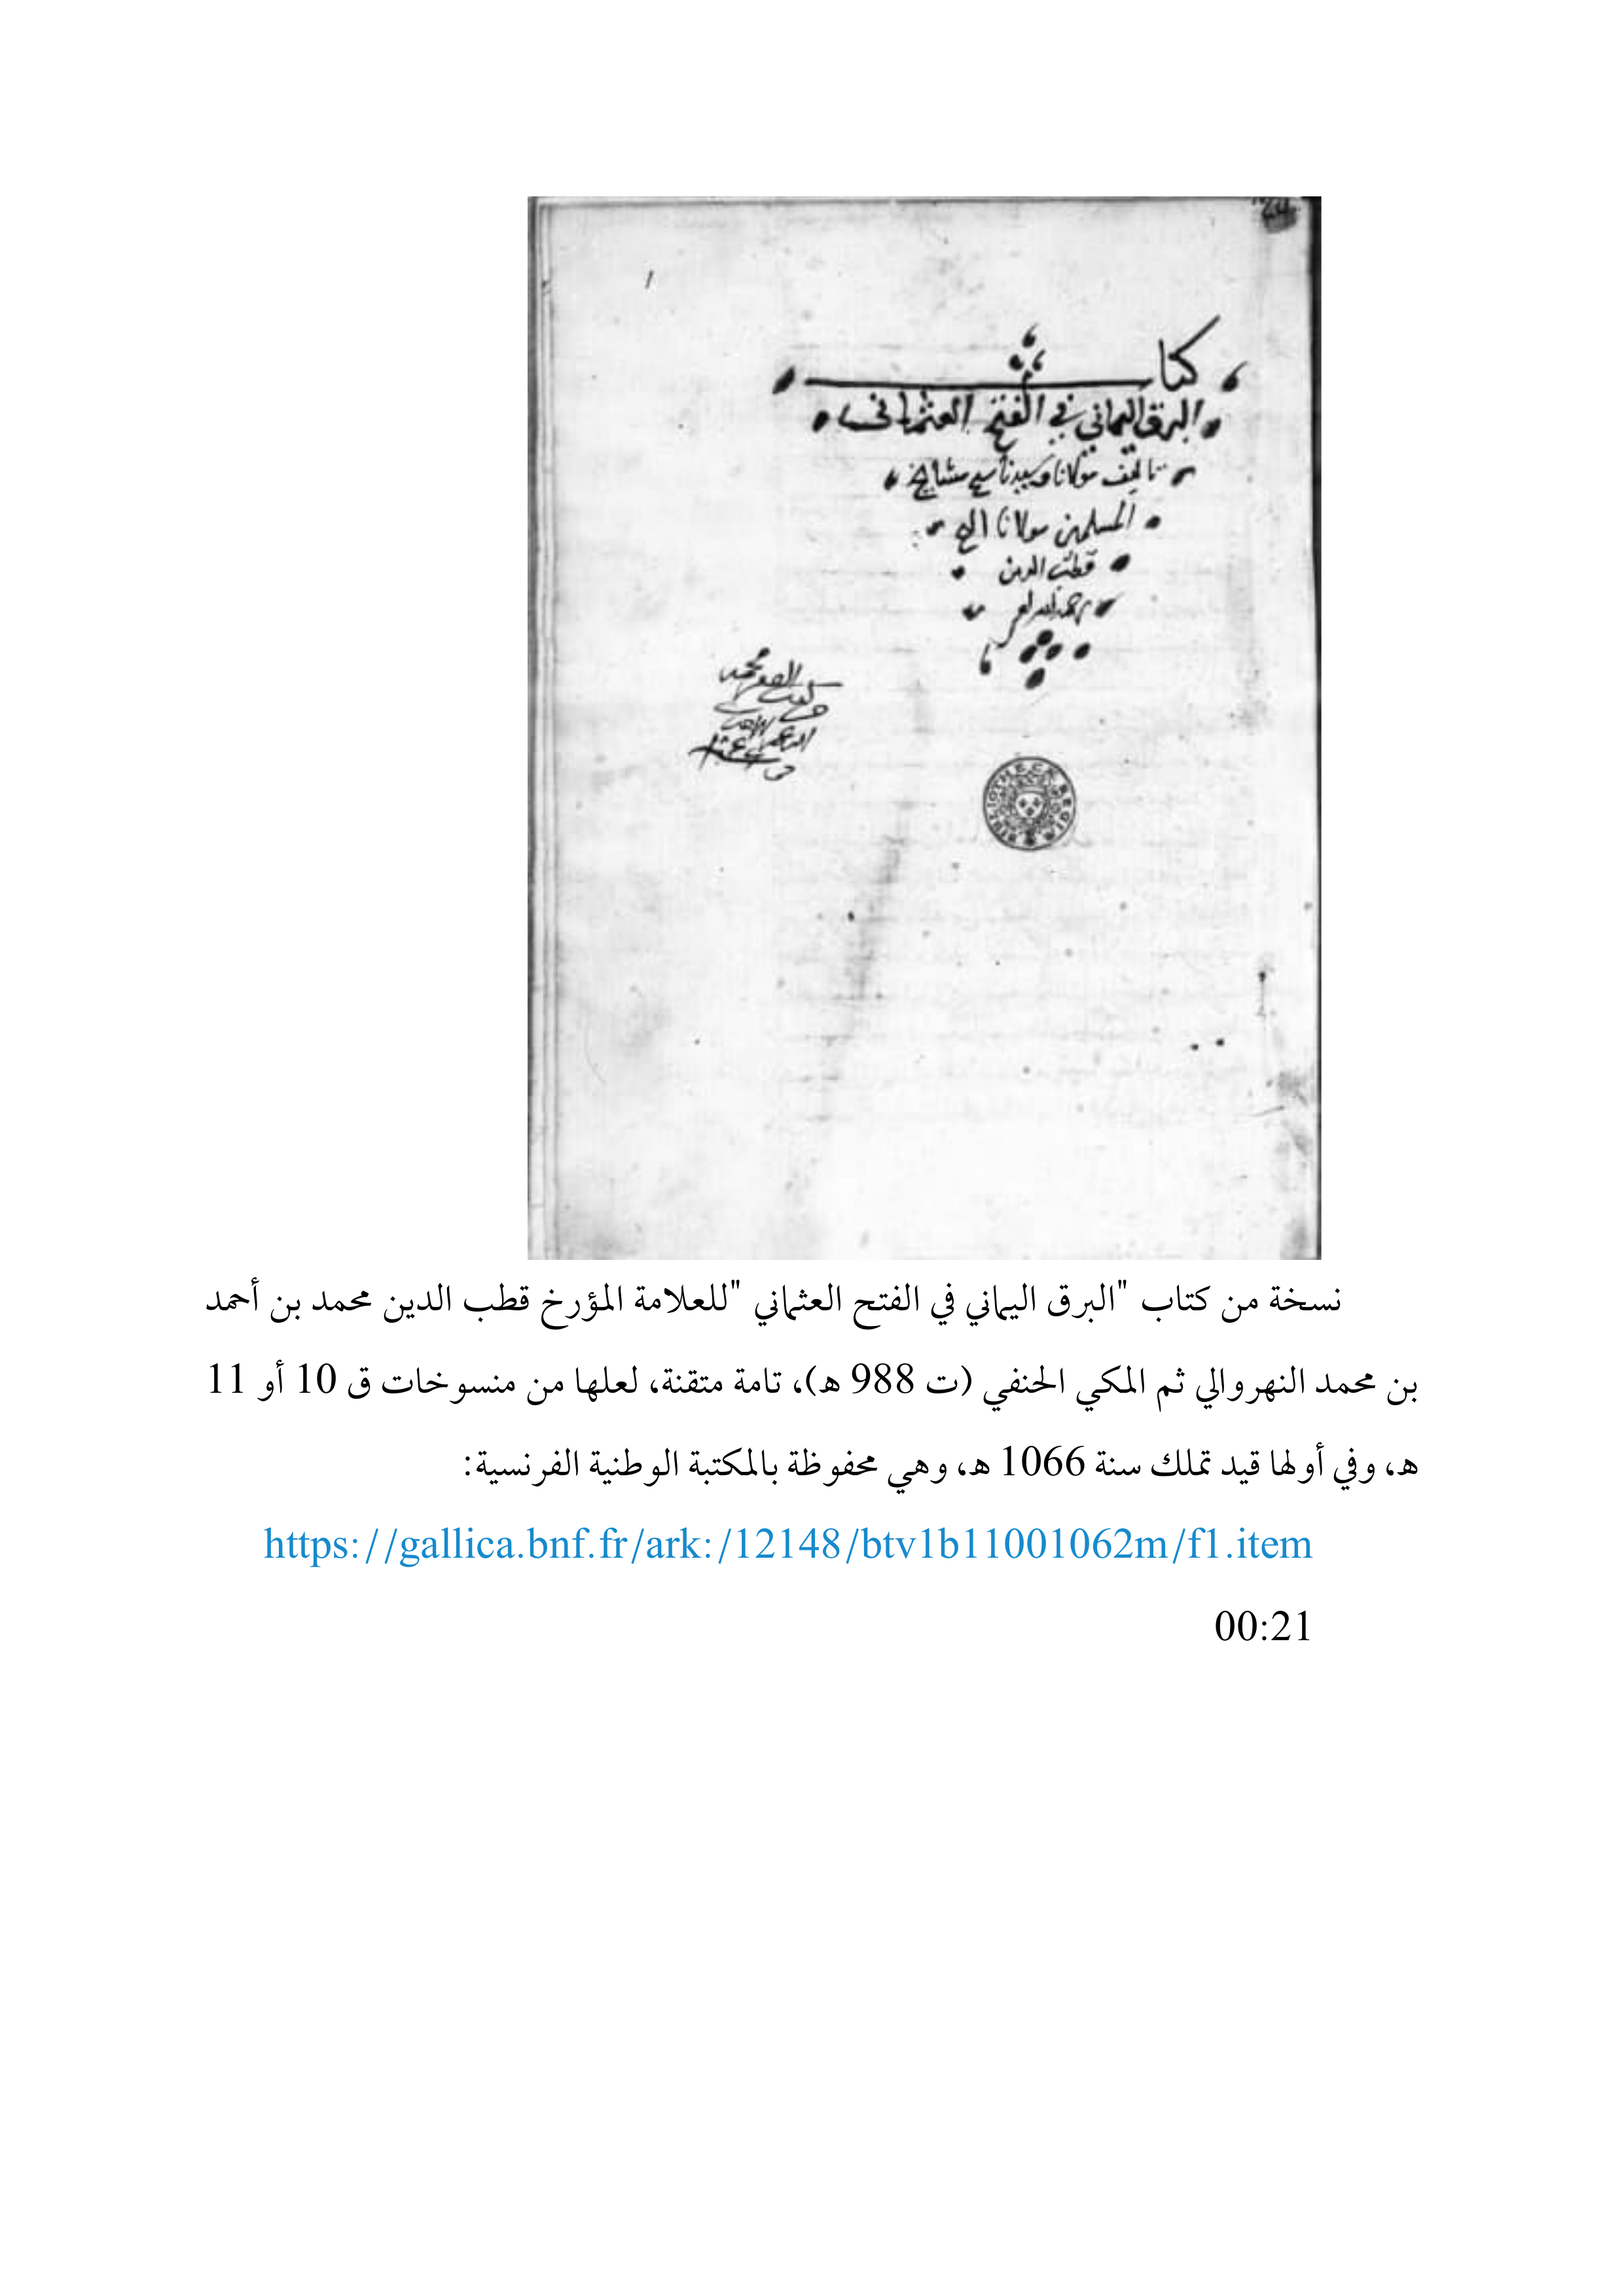 كتاب
البرق اليماني في الفتح العثماني
تاليف مولانا وسيدنا شيخ مشايخ
المسلمين مولانا الشيخ
قطب الدين
رحمه الله
محمد
BIBLIOTHECAE REGIAE
نسخة من كتاب "البرق اليماني في الفتح العثماني "للعلامة المؤرخ قطب الدين محمد بن أحمد
بن محمد النهروالي ثم المكي الحنفي (ت 988 ه)، تامة متقنة، لعلها من منسوخات ق 10 أو 11
ه، وفي أولها قيد تملك سنة 1066 ه، وهي محفوظة بالمكتبة الوطنية الفرنسية:
https://gallica.bnf.fr/ark:/12148/btv1b11001062m/f1.item
00:21